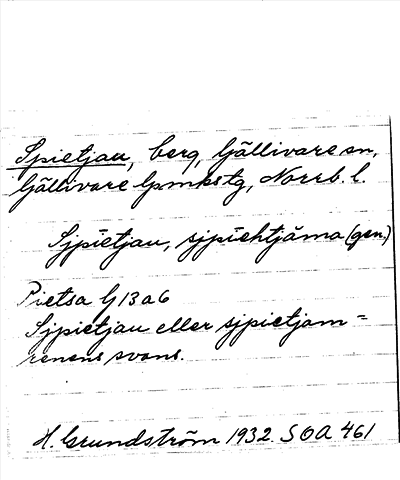 Spietjau, berg, Gällivare sn,
Gällivare lpmkstg, Norrb. l.
Sjpietjau, sjpiehtjáma (gen.)
Pietsa G 13 a 6
Sjpietjau eller sjpietjam =
renens svans.
H. Grundström 1932. SOA 461